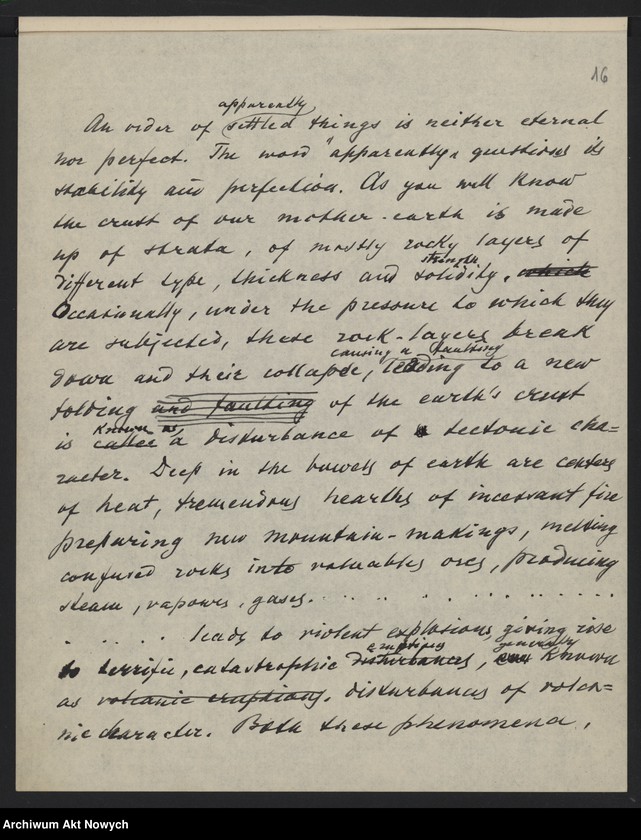 16
apparently
An order of settled things is neither eternal
nor perfect. The word "apparently" questions its
stability and perfection. As you will know
the crust of our mother-earth is made
up of strata, of mostly rocky layers of
strength,
different type, thickness and solidity. which
Occasionally, under the pressure to which they
are subjected, these rock-layers break
causing a faulting
down and their collapse, leading to a new
folding and faulting of the earth's crust
known as
is called a disturbance of tectonic cha=
racter. Deep in the bowels of earth are centers
of heat, tremendous hearths of incessant fire
preparing new mountain-makings, melting
confused rocks into valuables ores, producing
steam, vapours, gases. . . . . . . . . . . . .
. . . . . leads to violent explosions giving rise
eruptions generally
to terrific, catastrophic disturbances, known
as volcanic eruptions. disturbances of volca=
nic character. Both these phenomena,
Archiwum Akt Nowych